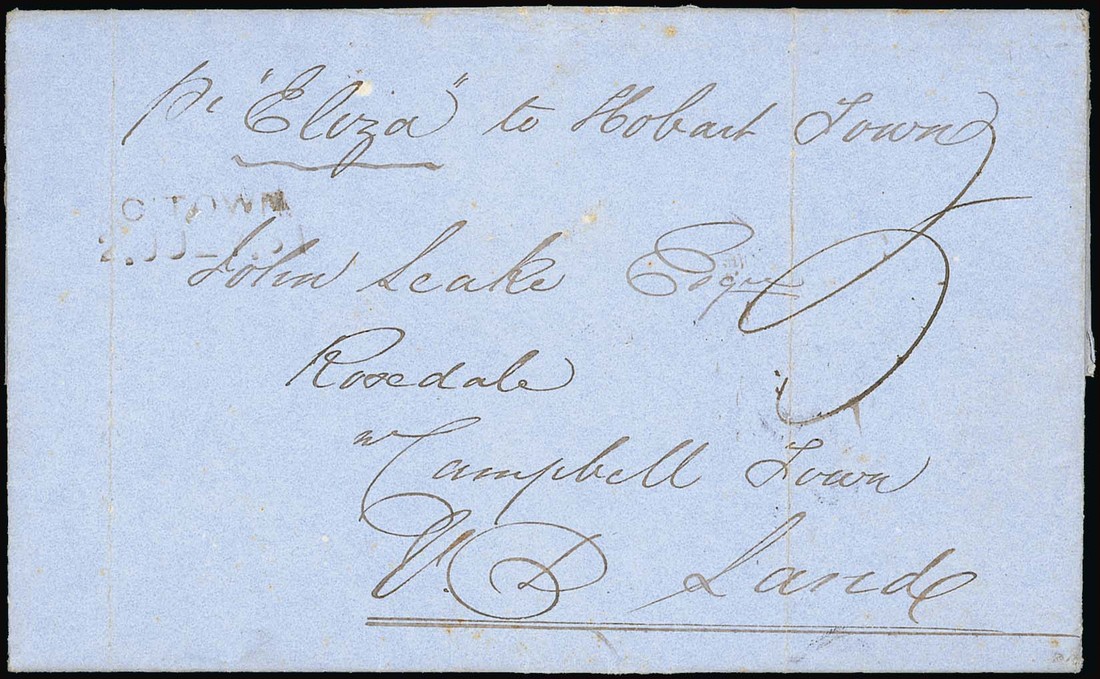 pr "Eliza" to Hobart Town
John Leake Esqre
Rosedale
nr Campbell Town
V. D Land
5